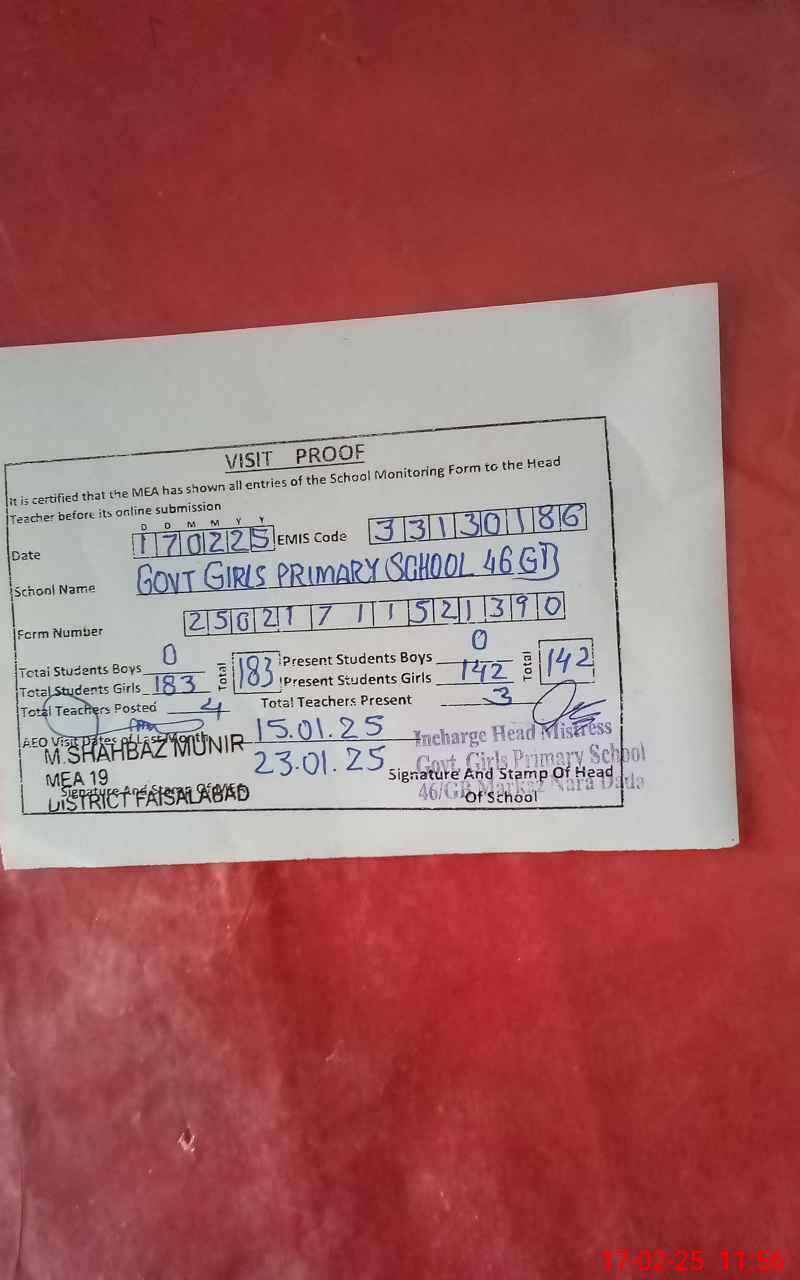 VISIT PROOF
It is certified that the MEA has shown all entries of the School Monitoring Form to the Head
Teacher before its online submission
D D M M Y Y
Date 170225 EMIS Code 33130186
School Name GOVT GIRLS PRIMARY SCHOOL 46 GB
Form Number 25021711521390
Total Students Boys 0 Total 183 Present Students Boys 0 Total 142
Total Students Girls 183 Present Students Girls 142
Total Teachers Posted 4 Total Teachers Present 3
AEO Visit Dates of Last Month 15.01.25
23.01.25
M.SHAHBAZ MUNIR
MEA 19
DISTRICT FAISALABAD
Signature And Stamp Of MEA
Incharge Head Mistress
Govt. Girls Primary School
46/GB Markaz Nara Dada
Signature And Stamp Of Head
Of School
17-02-25 11:56